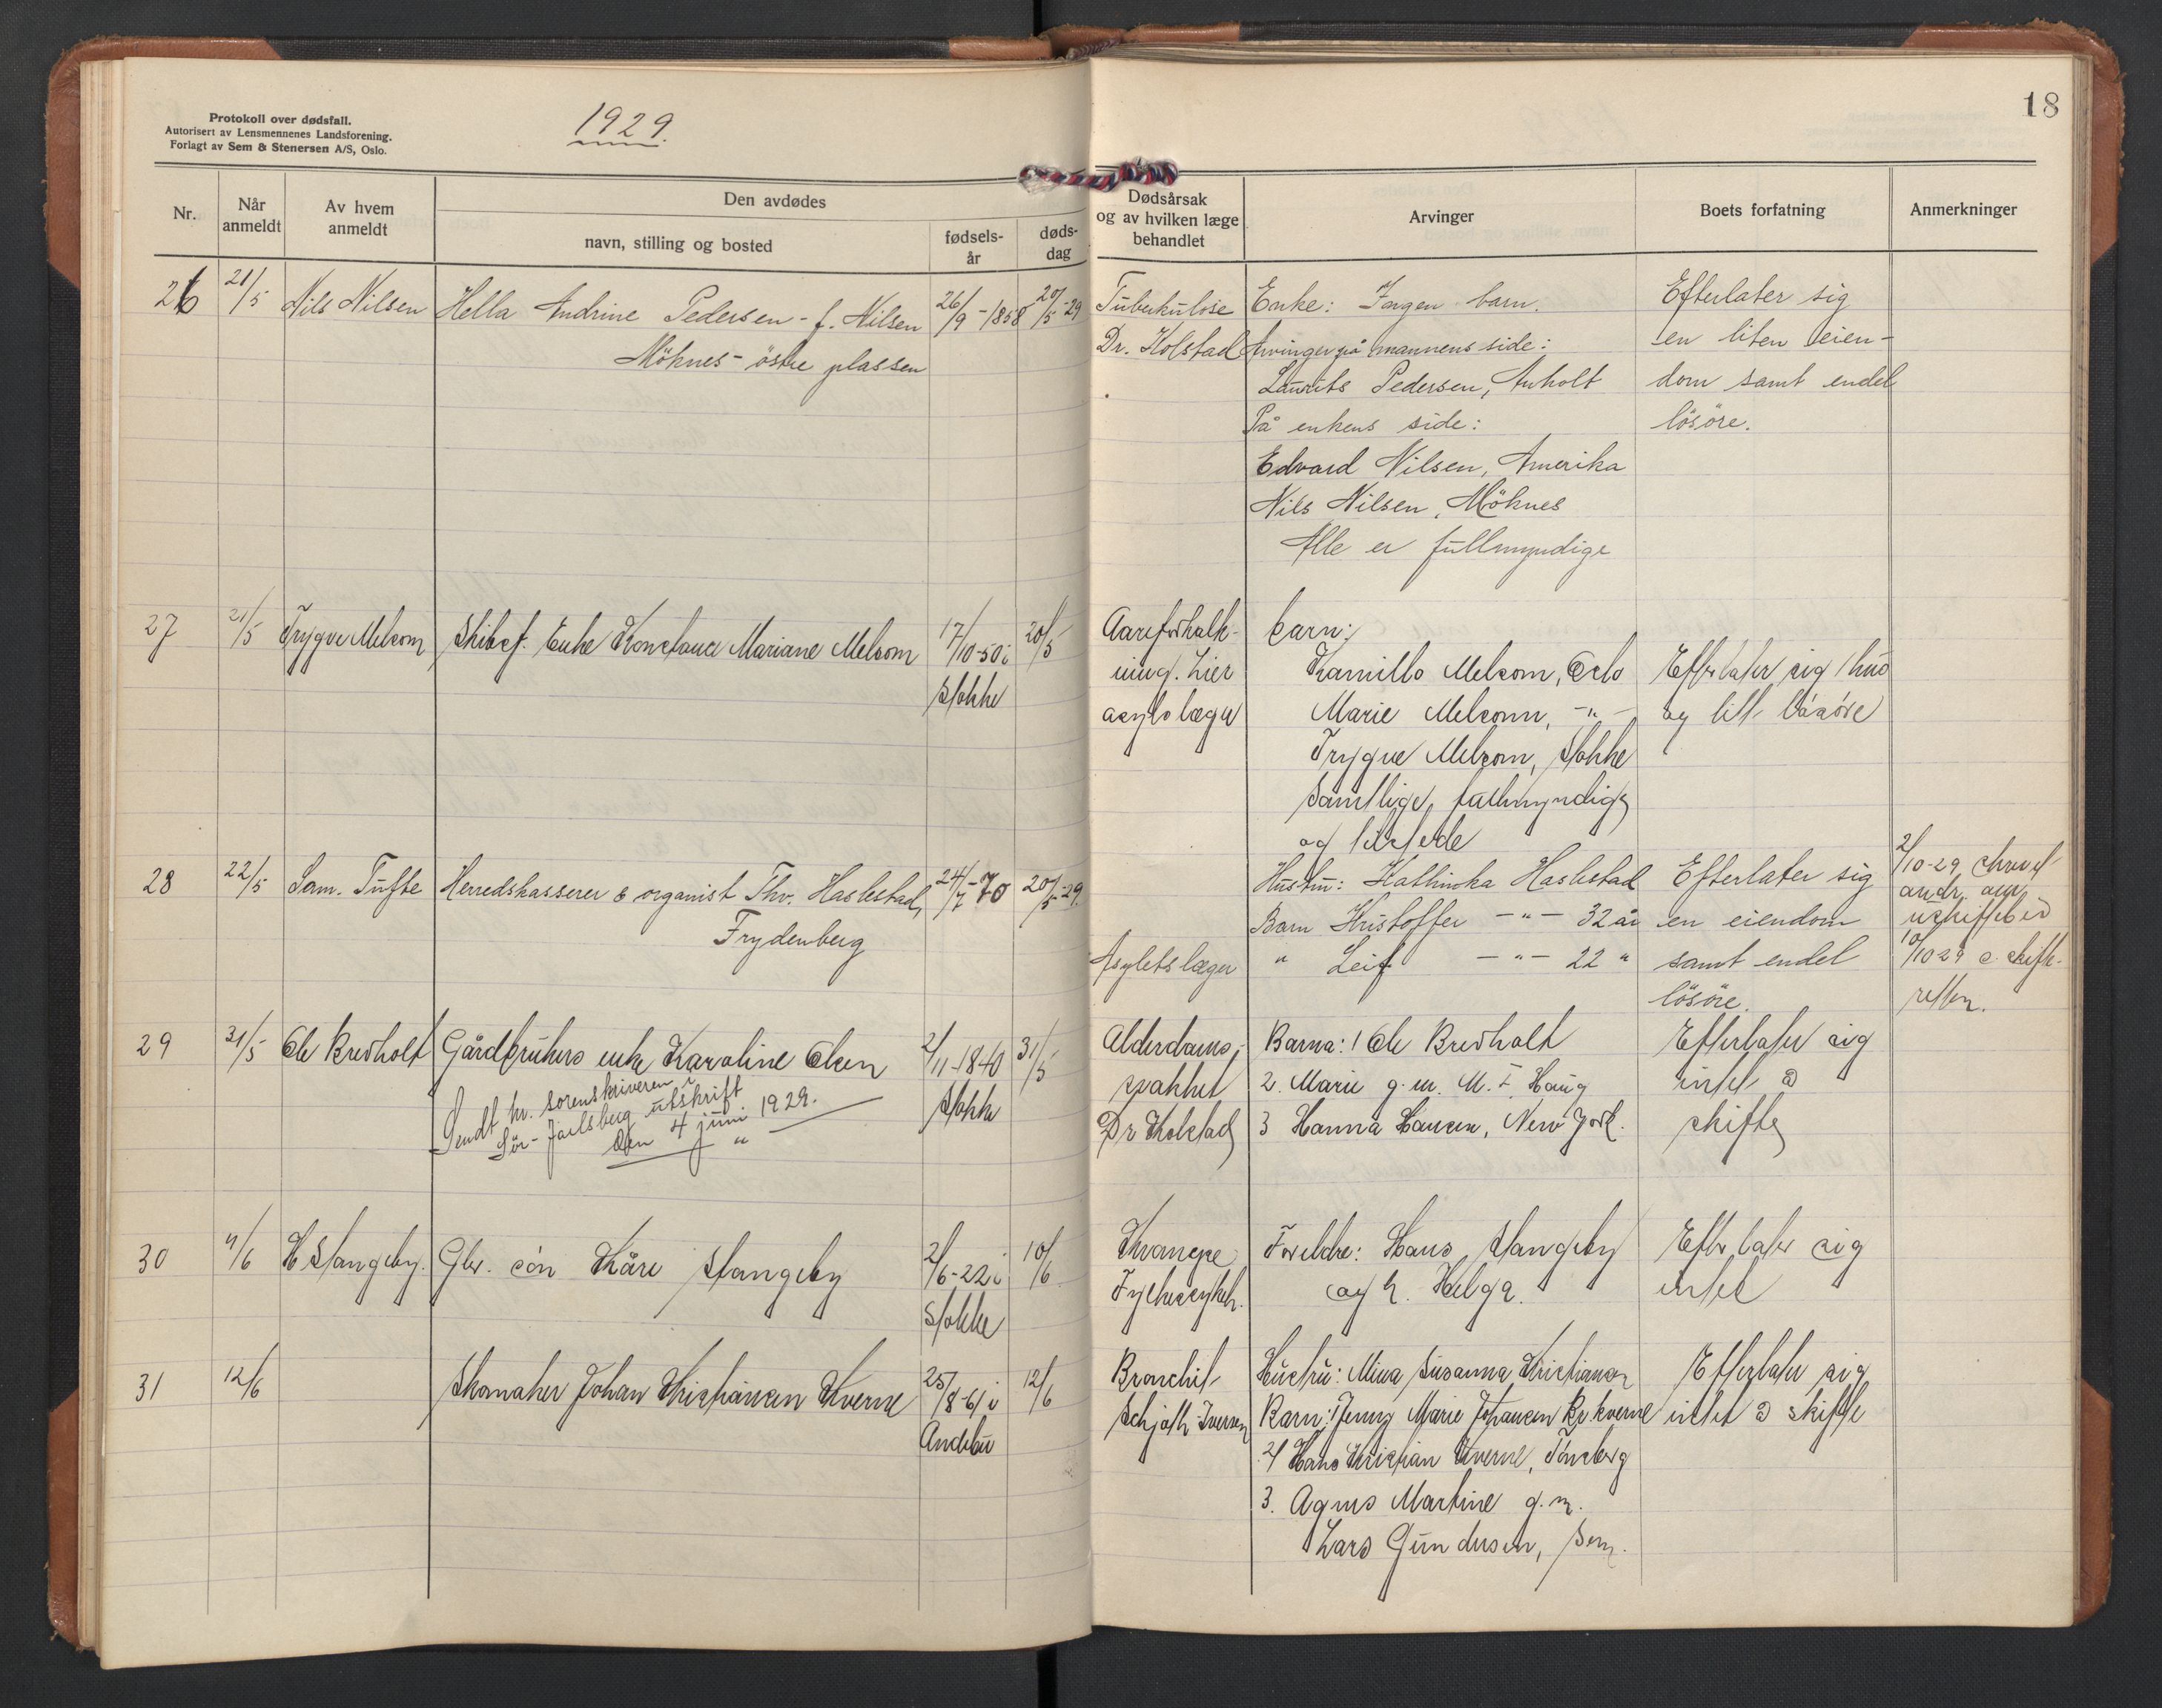 Protokoll over dødsfall.
Autorisert av Lensmennenes Landsforening.
Forlagt av Sem & Stenersen A/S, Oslo.
1929.
18
Nr.
Når anmeldt
Av hvem anmeldt
Den avdødes
navn, stilling og bosted
fødsels-år
døds-dag
Dødsårsak og av hvilken læge behandlet
Arvinger
Boets forfatning
Anmerkninger
26
21/5
Nils Nilsen
Hella Andrine Pedersen - f. Nilsen
Möknes - östre plassen
26/9 - 1858
20/5-29
Tuberkulose
Dr. Kolstad
Enke: Ingen barn.
Arvinger på mannens side:
Laurits Pedersen, Anholt
På enkens side:
Edvard Nilsen, Amerika
Nils Nilsen, Möknes
Alle er fullmyndige
Efterlater sig
en liten eien-
dom samt endel
lösöre.
27
21/5
Trygve Melsom
Skibsf. Enke Konstance Mariane Melsom
17/10-50 i
Stokke
20/5
Aareforkalk-
ning. Lier
asyls læge
barn:
Kamillo Melsom, Oslo
Marie Melsom, -"-
Trygve Melsom, Stokke
Samtlige fullmyndige
og tilstede
Efterlater sig 1 hus
og litt lösöre
28
22/5
Sam. Tufte
Herredskasserer & organist Thv. Haslestad,
Frydenberg
24/7-70
20/5-29
Asylets læger
Hustru: Kathinka Haslestad
Barn Kristoffer -"- 32 år
" Leif -"- 22 "
Efterlater sig
en eiendom
samt endel
lösöre.
2/10-29
andr. om
uskiftebo
10/10 29 s. skifte-
retten.
29
31/5
Ole Bredholt
Gårdbrukers enke Karoline Olsen
Sendt hr. sorenskriveren i
Sör-Jarlsberg utskrift
den 4 juni 1929.
"
2/11-1840
Stokke
31/5
Alderdoms-
svakhet
Dr Kolstad
Barna: 1 Ole Bredholt
2. Marie g. m. M. I. Haug
3 Hanna Hansen, New York.
Efterlater sig
intet å
skifte
30
11/6
H Stangeby.
Gbr. sön Kåre Stangeby
2/6-22 i
Stokke
10/6
Foreldre: Hans Stangeby
og h. Helga.
Efterlater sig
intet
31
12/6
Skomaker Johan Kristiansen Kverne
25/8-61 i
Andebu
12/6
Bronchit
Schjöth-Iversen
Hustru: Mina Susanna Kristiansen
Barn: 1 Jenny Marie Johansen Kverne
2) Hans Kristian Kverne, Tönsberg
3. Agnes Martine g. m.
Lars Gundersen, Sem.
Efterlater sig
intet å skifte